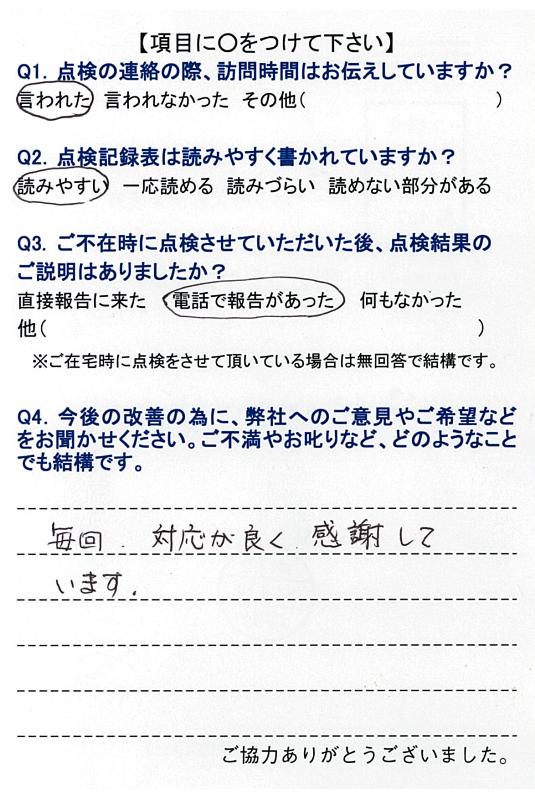 【項目に〇をつけて下さい】
Q1. 点検の連絡の際、訪問時間はお伝えしていますか？
言われた 言われなかった その他( )
Q2. 点検記録表は読みやすく書かれていますか？
読みやすい 一応読める 読みづらい 読めない部分がある
Q3. ご不在時に点検させていただいた後、点検結果の
ご説明はありましたか？
直接報告に来た 電話で報告があった 何もなかった
他( )
※ご在宅時に点検をさせて頂いている場合は無回答で結構です。
Q4. 今後の改善の為に、弊社へのご意見やご希望など
をお聞かせください。ご不満やお叱りなど、どのようなこと
でも結構です。
毎回、対応が良く、感謝して
います。
ご協力ありがとうございました。